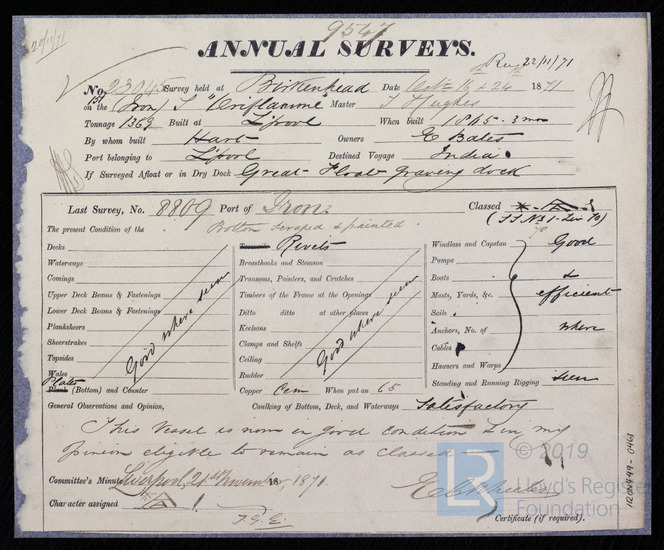 9547
22/11/71
ANNUAL SURVEYS.
Rec 22/11/71
No. 23045 Survey held at Birkenhead Date Oct 16 & 24 1871
on the (Iron) S "Oriflamme" Master T Hughes
Tonnage 1369 Built at L'pool When built 1865. 3 mo
By whom built Hart Owners E Bates
Port belonging to L'pool Destined Voyage India
If Surveyed Afloat or in Dry Dock Great Float graving dock
Last Survey, No. 8809 Port of Iron Classed
(SS No 1 - Liv 70)
The present Condition of the Bottom scraped & painted
Decks
Waterways
Comings
Upper Deck Beams & Fastenings
Lower Deck Beams & Fastenings
Planksheers
Sheerstrakes
Topsides
Wales
Plates
Plank (Bottom) and Counter
Good where seen
Treenails Rivets
Breasthooks and Stemson
Transoms, Pointers, and Crutches
Timbers of the Frame at the Openings
Ditto ditto at other places
Keelsons
Clamps and Shelfs
Ceiling
Rudder
Copper Cem When put on 65
Good where seen
Windlass and Capstan Good
Pumps
Boats &
Masts, Yards, &c. efficient
Sails
Anchors, No. of where
Cables
Hawsers and Warps
Standing and Running Rigging seen
General Observations and Opinion, Caulking of Bottom, Deck, and Waterways Satisfactory
This Vessel is now in good condition & in my
opinion eligible to remain as classed
Committee's Minute Liverpool, 21st November, 1871
Character assigned
Certificate (if required).
© 2019
LR
Lloyd's Register
Foundation